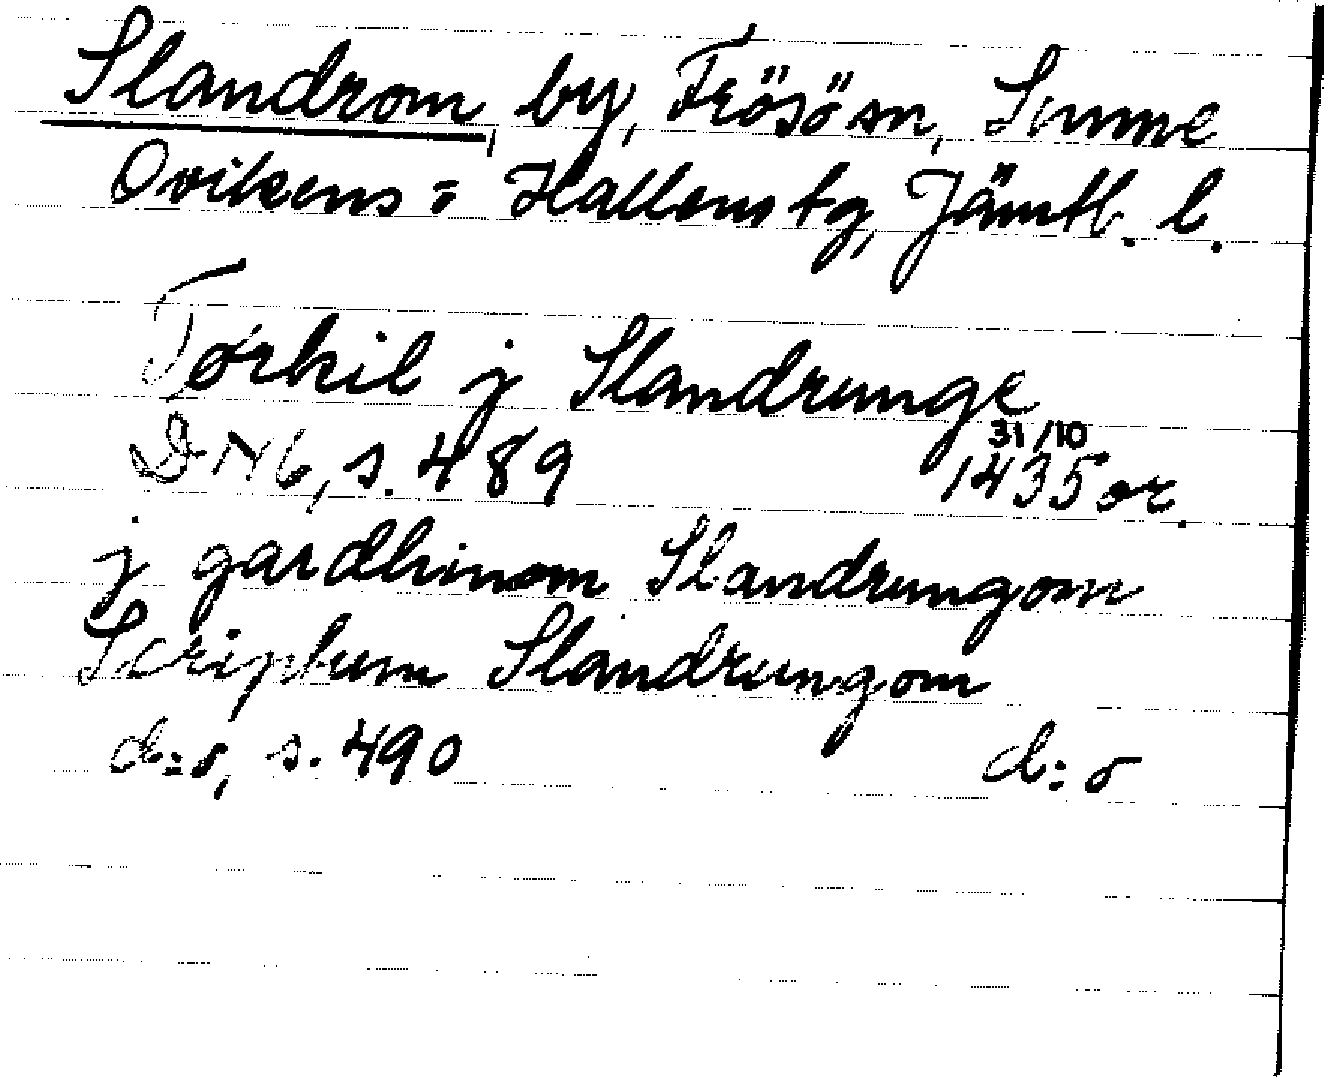 Slandrom, by, Frösö sn, Sunne
Ovikens o Hallens tg, Jämtl. l.
Tørkil j Slandrunge
31/10
DN 6, s. 489 1435 or.
j gardhinom Slandrungom
Scriptum Slandrungom
d:o, s. 490 d:o